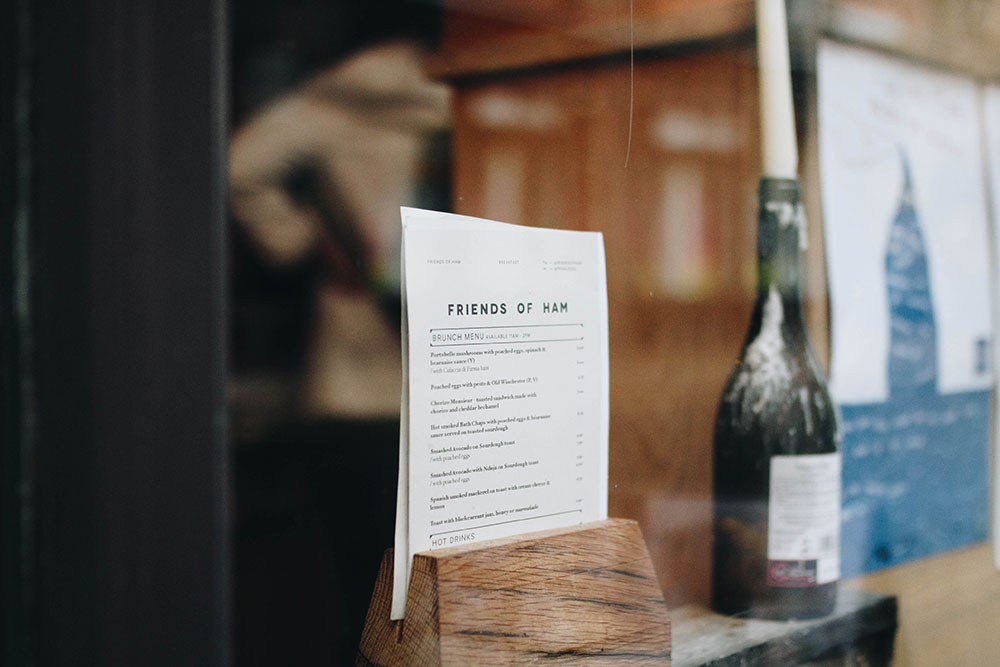 FRIENDS OF HAM
BREAKFAST
FRIENDS OF HAM
BRUNCH MENU AVAILABLE 11AM - 2PM
Portobello mushrooms with poached eggs, spinach &
béarnaise sauce (V)
/ with Calaccia & Parma ham
Poached eggs with pesto & Old Winchester (P, V)
Chorizo Monsieur - toasted sandwich made with
chorizo and cheddar bechamel
Hot smoked Bath Chaps with poached eggs & béarnaise
sauce served on toasted sourdough
Smashed Avocado on Sourdough toast
/ with poached eggs
Smashed Avocado with Nduja on Sourdough toast
/ with poached eggs
Spanish smoked mackerel on toast with cream cheese &
lemon
Toast with blackcurrant jam, honey or marmalade
HOT DRINKS